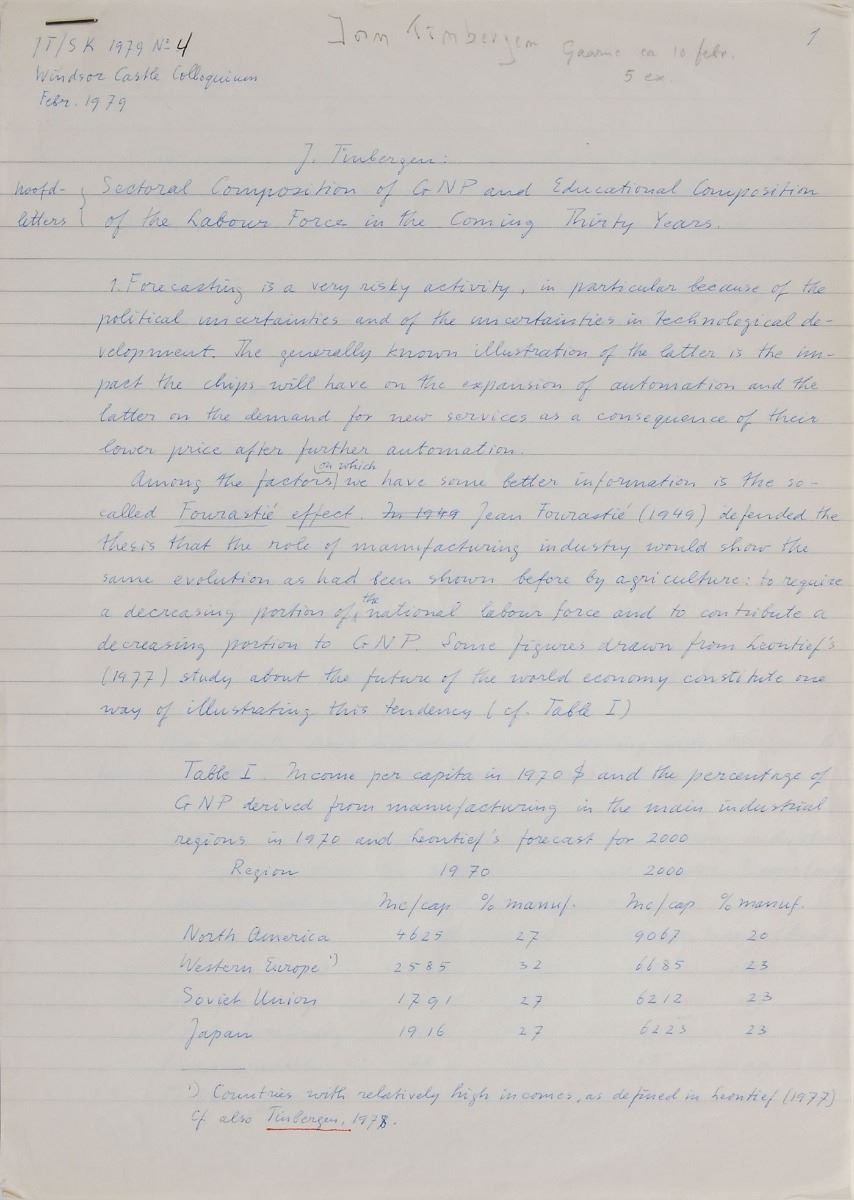 JT/SK 1979 No 4
Jan Tinbergen
Gaarne ca 10 febr.
1
Windsor Castle Colloquium
5 ex.
Febr. 1979
J. Tinbergen:
hoofd- Sectoral Composition of GNP and Educational Composition
letters of the Labour Force in the Coming Thirty Years.
1. Forecasting is a very risky activity, in particular because of the
political uncertainties and of the uncertainties in technological de-
velopment. The generally known illustration of the latter is the im-
pact the chips will have on the expansion of automation and the
latter on the demand for new services as a consequence of their
lower price after further automation.
Among the factors on which we have some better information is the so-
called Fourastié effect. In 1949 Jean Fourastié (1949) defended the
thesis that the role of manufacturing industry would show the
same evolution as had been shown before by agriculture: to require
a decreasing portion of the national labour force and to contribute a
decreasing portion to GNP. Some figures drawn from Leontief's
(1977) study about the future of the world economy constitute one
way of illustrating this tendency (cf. Table I)
Table I. Income per capita in 1970 $ and the percentage of
GNP derived from manufacturing in the main industrial
regions in 1970 and Leontief's forecast for 2000
Region 1970 2000
Inc/cap % manuf. Inc/cap % manuf.
North America 4625 27 9067 20
Western Europe 1) 2585 32 6685 23
Soviet Union 1791 27 6212 23
Japan 1916 27 6223 23
1) Countries with relatively high incomes, as defined in Leontief (1977)
Cf. also Tinbergen, 1978.